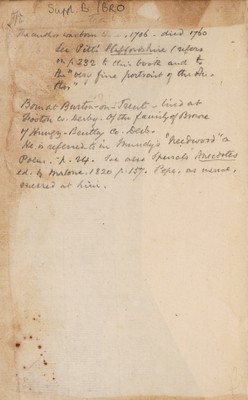 Suppl. B (BRO
The author was born . . . 1706 - died 1760
See Pitt's Staffordshire (refers
on p. 232 to this book and to
the "very fine portrait of the Au-
thor."
Born at Burton-on-Trent - lived at
Doveton Co. Derby. Of the family of Browne
of Hungry-Bentley Co. Derb.
He is referred to in Mundy's "Needwood" a
Poem. - p. 24. See also Spence's Anecdotes
ed. by Malone. 1820 p. 157. Pope, as usual,
sneered at him.